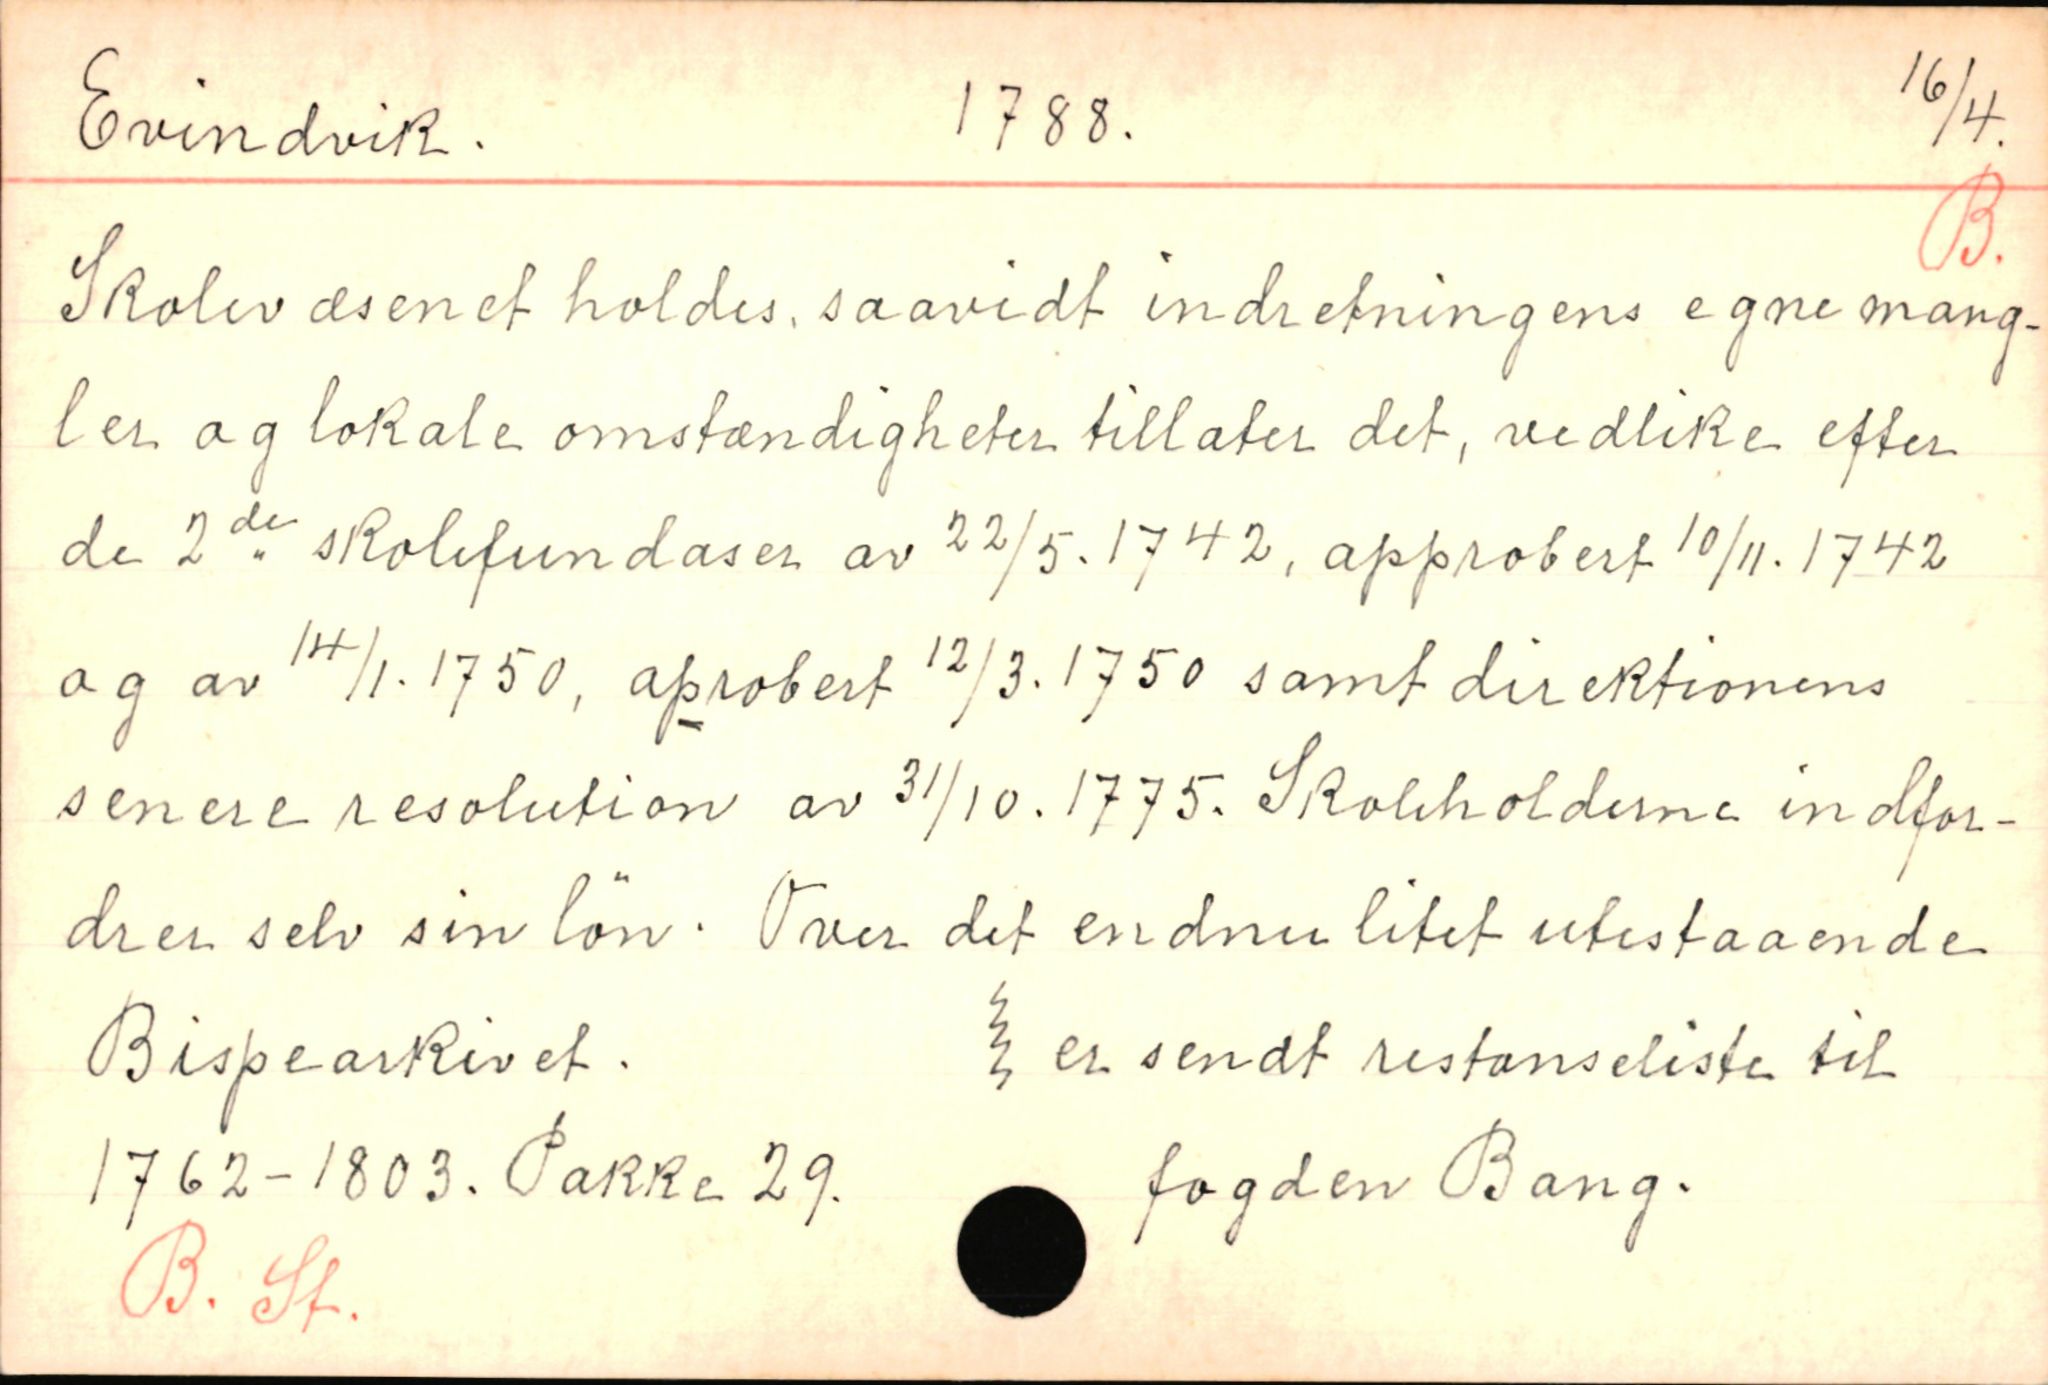 Evindvik. 1788. 16/4.
B.
Skolevæsenet holdes, saavidt indretningens egne mang-
ler og lokale omstændigheter tillater det, vedlike efter
de 2de skolefundaser av 22/5. 1742, approbert 10/11. 1742
og av 14/1. 1750, aprobert 12/3. 1750 samt direktionens
senere resolution av 31/10. 1775. Skoleholderne indfor-
drer selv sin lön. Over det endnu litet utestaaende
Bispearkivet. er sendt restanseliste til
1762-1803. Pakke 29. fogden Bang.
B. St.